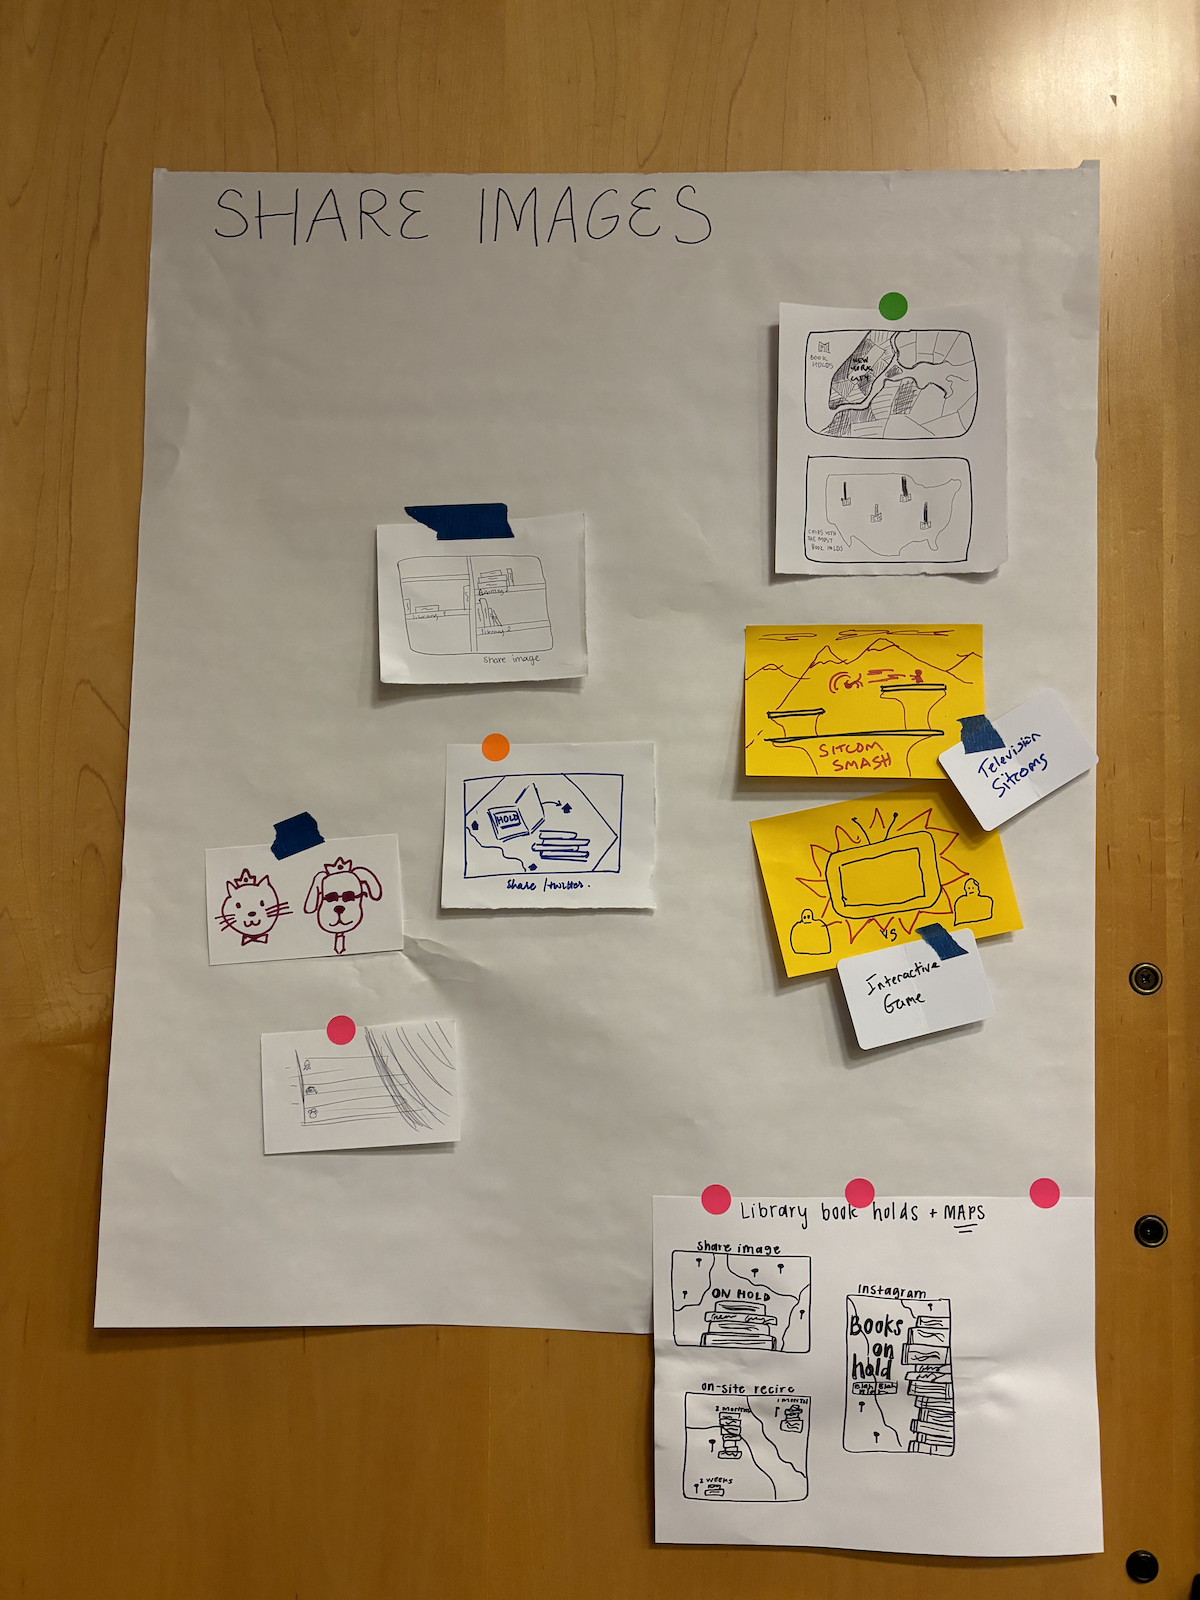 SHARE IMAGES
BOOK
HOLDS
NEW
YORK
CITY
CITIES WITH
THE MOST
BOOK HOLDS
library 1
library 2
share image
SITCOM
SMASH
Television
Sitcoms
HOLD
share / twitter.
VS
Interactive
Game
Library book holds + MAPS
share image
ON HOLD
instagram
Books
on
hold
Blah Blah
on-site recirc
2 MONTHS
1 MONTH
2 WEEKS